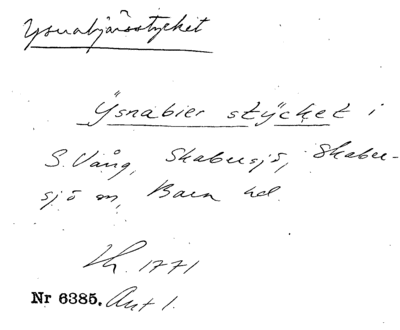 Ysnabjärsstycket
Ÿsnabier stÿcket i
S. Vång, Skabersjö, Skaber-
sjö sn, Bara hd.
Lh. 1771
Nr 6385. Akt 1.